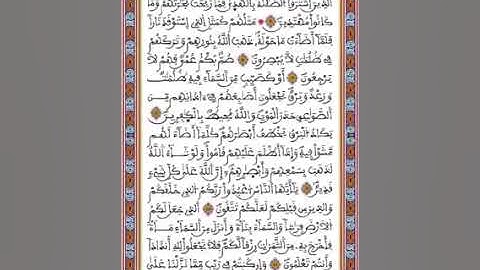 الذِينَ اَشْتَرَوُا الضَّلَٰلَةَ بِالْهُدَىٰ فَمَا رَبِحَت تِّجَٰرَتُهُمْ وَمَا
كَانُوا مُهْتَدِينَ مَثَلُهُمْ كَمَثَلِ الذِي اِسْتَوْقَدَ نَاراً
فَلَمَّا أَضَاءَتْ مَا حَوْلَهُ ذَهَبَ اللَّهُ بِنُورِهِمْ وَتَرَكَهُمْ
فِي ظُلُمَٰتٍ لَّا يُبْصِرُونَ صُمٌّ بُكْمٌ عُمْيٌ فَهُمْ لَا
يَرْجِعُونَ أَوْ كَصَيِّبٍ مِّنَ السَّمَاءِ فِيهِ ظُلُمَٰتٌ
وَرَعْدٌ وَبَرْقٌ يَجْعَلُونَ أَصَٰبِعَهُمْ فِي ءَاذَانِهِم مِّنَ
الصَّوَٰعِقِ حَذَرَ الْمَوْتِ وَاللَّهُ مُحِيطٌ بِالْكَٰفِرِينَ
يَكَادُ الْبَرْقُ يَخْطَفُ أَبْصَٰرَهُمْ كُلَّمَا أَضَاءَ لَهُم
مَّشَوْا فِيهِ وَإِذَا أَظْلَمَ عَلَيْهِمْ قَامُوا وَلَوْ شَاءَ اللَّهُ
لَذَهَبَ بِسَمْعِهِمْ وَأَبْصَٰرِهِمْ إِنَّ اللَّهَ عَلَىٰ كُلِّ شَيْءٍ
قَدِيرٌ يَٰأَيُّهَا النَّاسُ اعْبُدُوا رَبَّكُمُ الذِي خَلَقَكُمْ
وَالذِينَ مِن قَبْلِكُمْ لَعَلَّكُمْ تَتَّقُونَ الذِي جَعَلَ لَكُمُ
الْأَرْضَ فِرَٰشاً وَالسَّمَاءَ بِنَاءً وَأَنزَلَ مِنَ السَّمَاءِ مَاءً
فَأَخْرَجَ بِهِ مِنَ الثَّمَرَٰتِ رِزْقاً لَّكُمْ فَلَا تَجْعَلُوا لِلَّهِ أَندَاداً
وَأَنتُمْ تَعْلَمُونَ وَإِن كُنتُمْ فِي رَيْبٍ مِّمَّا نَزَّلْنَا عَلَىٰ